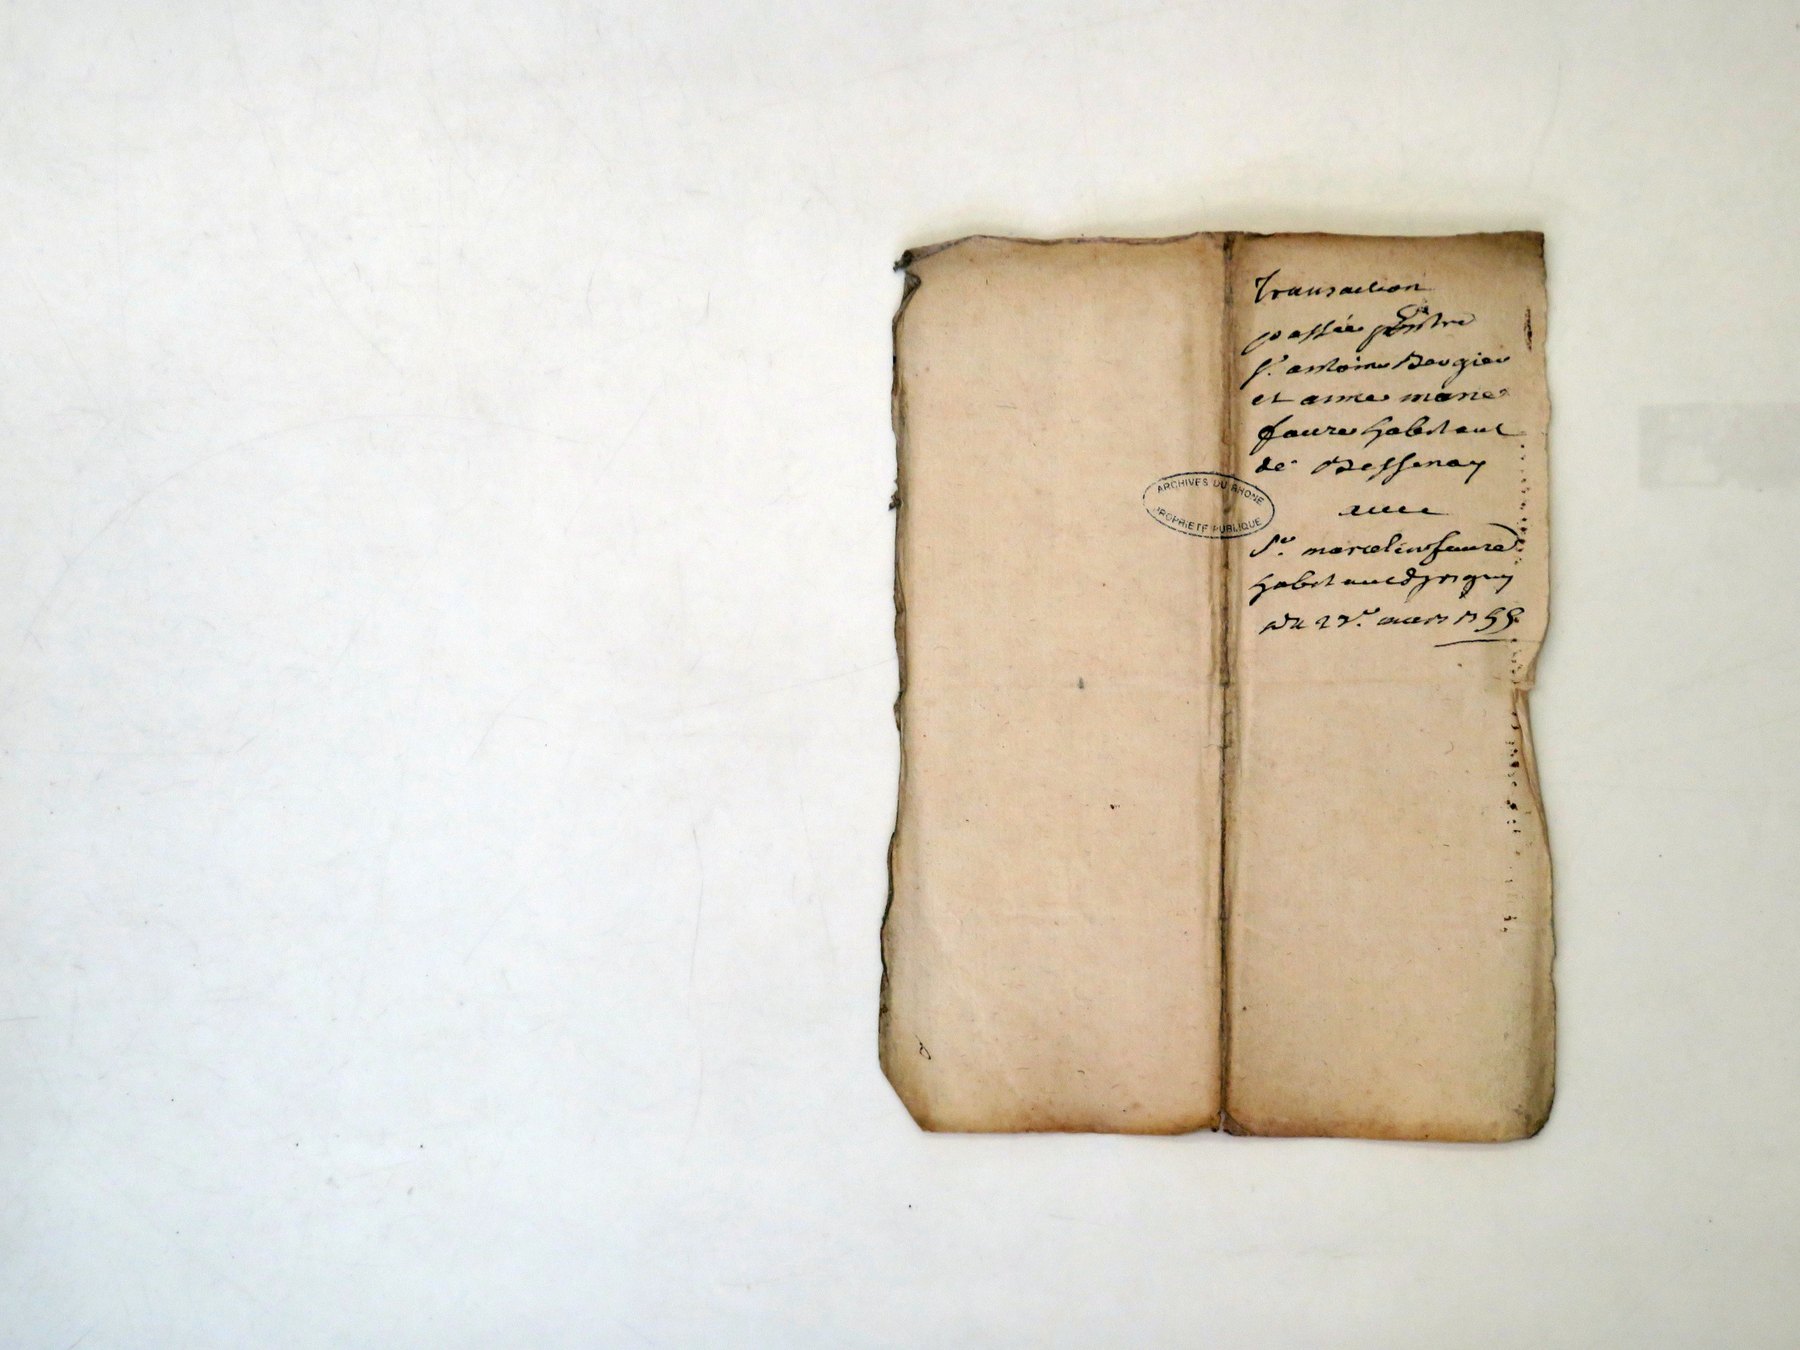 Transaction
passée Entre
Sr. antoine Bergier
et anne marie
faure habitant
de Bessenay
avec
Sr. marcelin faure
habitant
du mars 1755
ARCHIVES DU RHONE
PROPRIETE PUBLIQUE